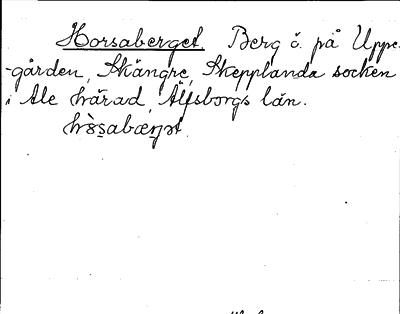 Horsaberget. Berg ö. på Uppe-
gården, Skångre, Skepplanda socken
i Ale härad, Älfsborgs län.